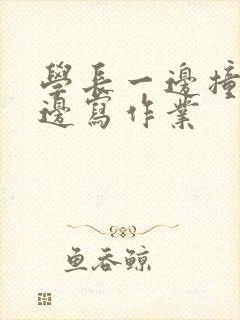 學長一邊撞
邊寫作業
魚吞鯨